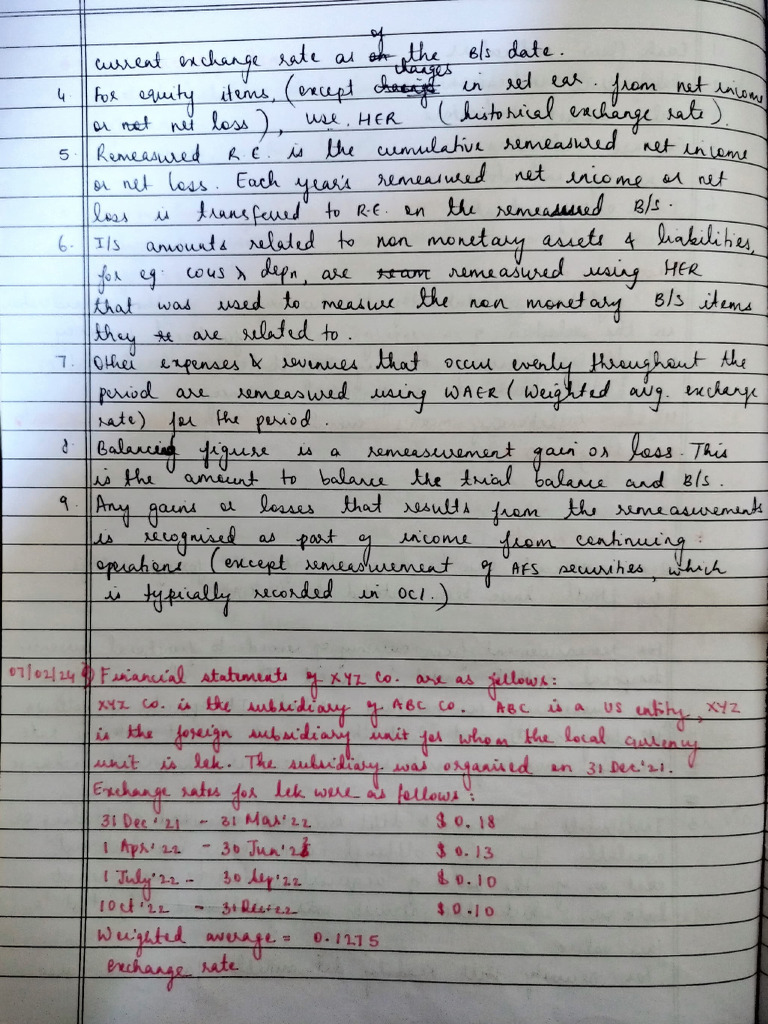 of
current exchange rate as on the B/S date.
changes
4. For equity items, (except change in ret ear. from net income
or not net loss), use HER (historical exchange rate).
5. Remeasured R.E. is the cumulative remeasured net income
or net loss. Each year's remeasured net income or net
loss is transferred to R.E. on the remeasured B/S.
6. I/S amounts related to non monetary assets & liabilities,
for eg. COGS & depn, are remeasured using HER
that was used to measure the non monetary B/S items
they are related to.
7. Other expenses & revenues that occur evenly throughout the
period are remeasured using WAER (Weighted avg. exchange
rate) for the period.
8. Balancing figure is a remeasurement gain or loss. This
is the amount to balance the trial balance and B/S.
9. Any gains or losses that results from the remeasurements
is recognised as part of income from continuing
operations (except remeasurement of AFS securities, which
is typically recorded in OCI.)
07/02/24 Financial statements of XYZ Co. are as follows:
XYZ Co. is the subsidiary of ABC Co. ABC is a US entity, XYZ
is the foreign subsidiary unit for whom the local currency
unit is lek. The subsidiary was organised on 31 Dec'21.
Exchange rates for lek were as follows:
31 Dec'21 - 31 Mar'22 $0.18
1 Apr'22 - 30 Jun'22 $0.13
1 July'22 - 30 Sep'22 $0.10
1 Oct '22 - 31 Dec'22 $0.10
Weighted average = 0.1275
exchange rate